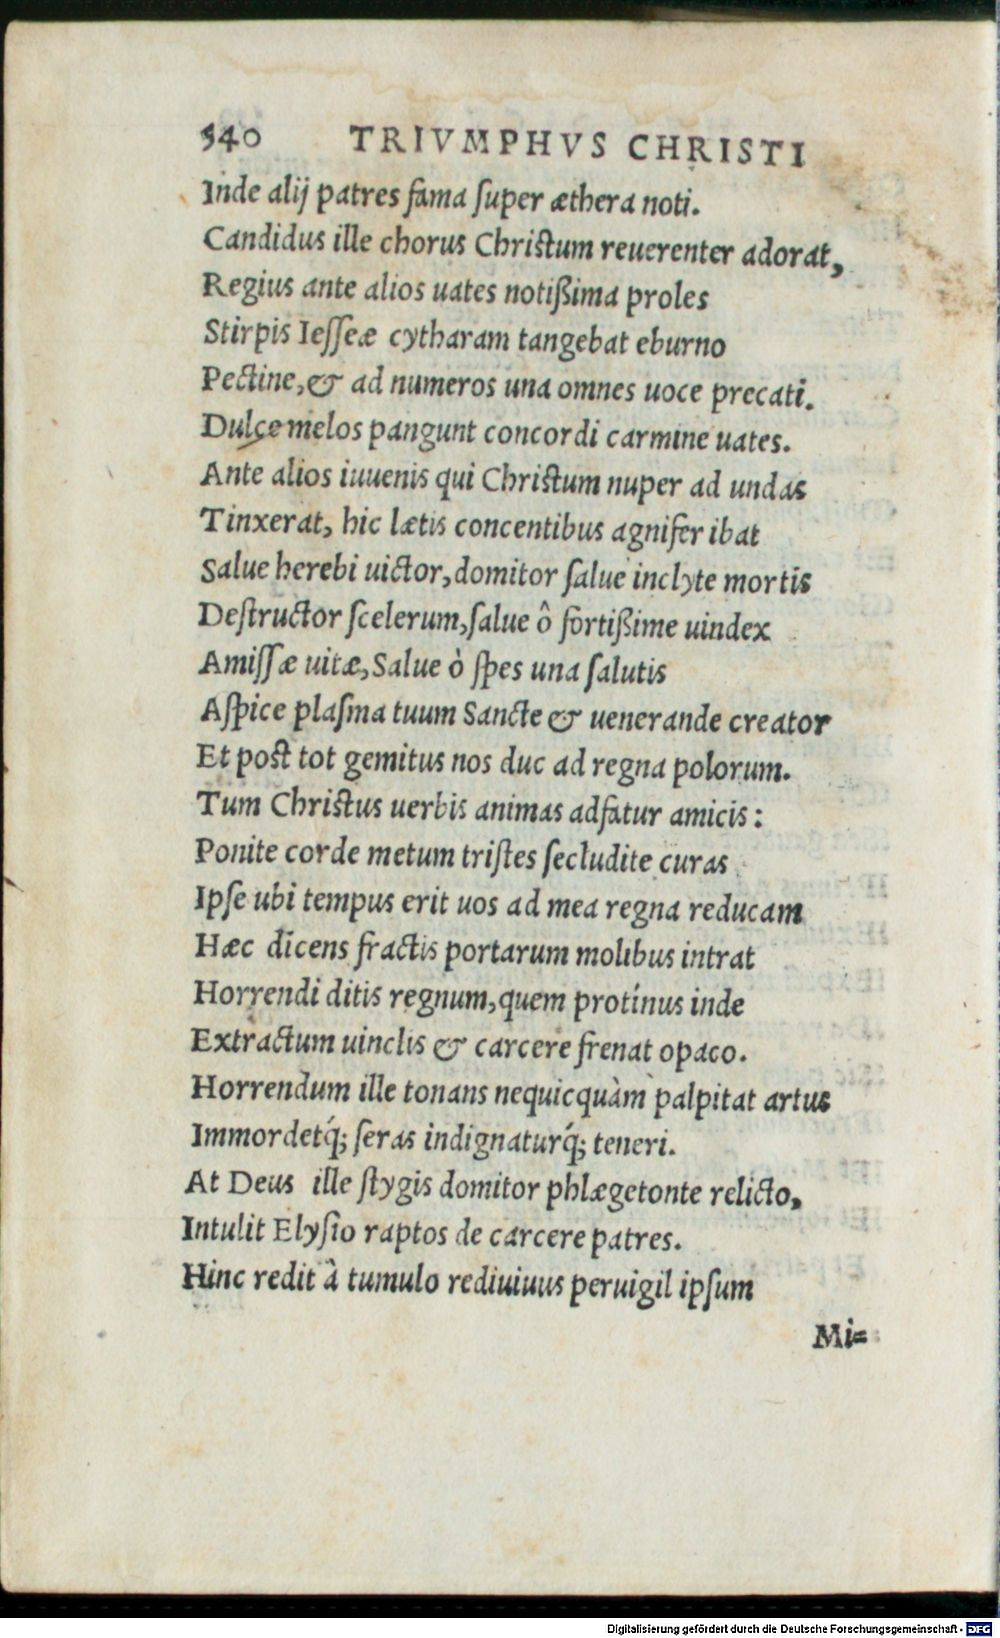 540 TRIVMPHVS CHRISTI
Inde alij patres fama ſuper æthera noti.
Candidus ille chorus Chriſtum reuerenter adorat,
Regius ante alios uates notißima proles
Stirpis Ieſſeæ cytharam tangebat eburno
Pectine, & ad numeros una omnes uoce precati.
Dulce melos pangunt concordi carmine uates.
Ante alios iuuenis qui Chriſtum nuper ad undas
Tinxerat, hic lætis concentibus agnifer ibat
Salue herebi uictor, domitor ſalue inclyte mortis
Deſtructor ſcelerum, ſalue ô fortißime uindex
Amiſſæ uitæ, Salue ò ſpes una ſalutis
Aſpice plaſma tuum Sancte & uenerande creator
Et poſt tot gemitus nos duc ad regna polorum.
Tum Chriſtus uerbis animas adfatur amicis:
Ponite corde metum triſtes ſecludite curas
Ipſe ubi tempus erit uos ad mea regna reducam
Hæc dicens fractis portarum molibus intrat
Horrendi ditis regnum, quem protinus inde
Extractum uinclis & carcere frenat opaco.
Horrendum ille tonans nequicquàm palpitat artus
Immordetq́; ſeras indignaturq́; teneri.
At Deus ille ſtygis domitor phlægetonte relicto,
Intulit Elyſio raptos de carcere patres.
Hinc redit à tumulo rediuiuus peruigil ipſum
Mi=
Digitalisierung gefördert durch die Deutsche Forschungsgemeinschaft - DFG